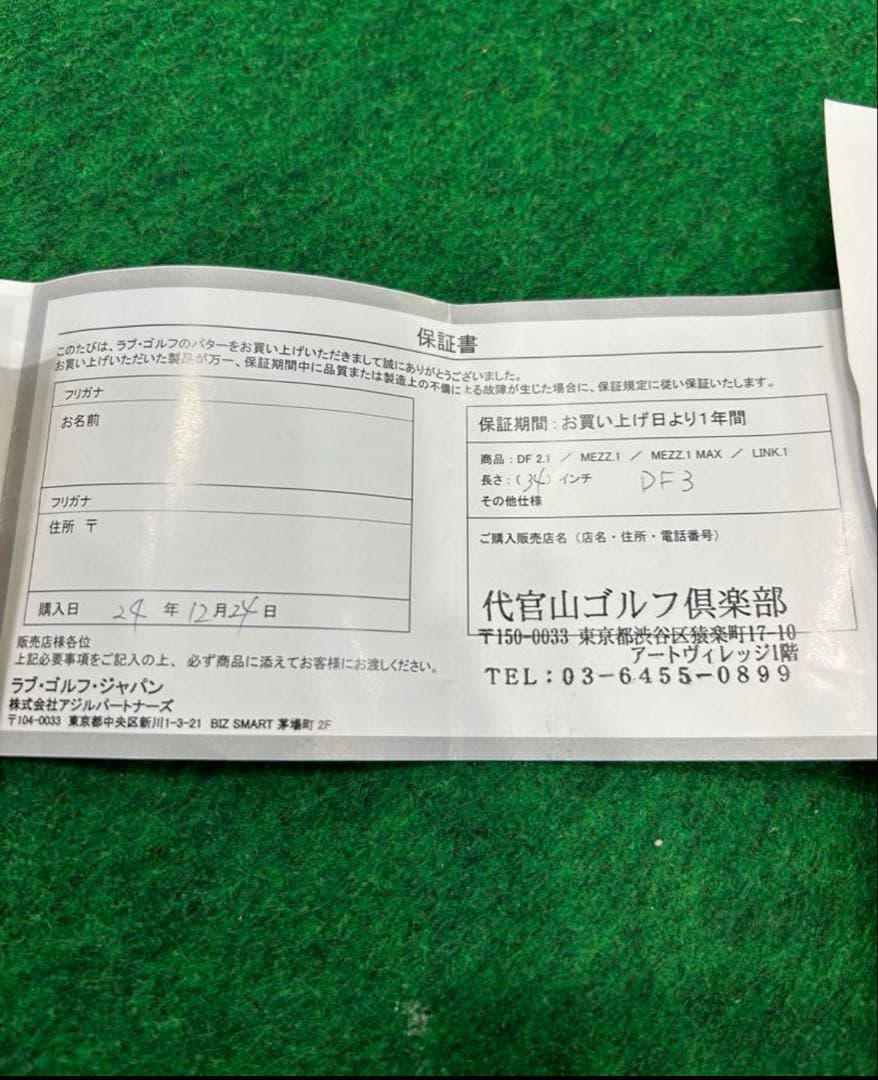 保証書
このたびは、ラブ・ゴルフのパターをお買い上げいただきまして誠にありがとうございました。
お買い上げいただいた製品が万一、保証期間中に品質または製造上の不備による故障が生じた場合に、保証規定に従い保証いたします。
フリガナ
お名前
フリガナ
住所 〒
購入日 24 年 12月24日
販売店様各位
上記必要事項をご記入の上、必ず商品に添えてお客様にお渡しください。
ラブ・ゴルフ・ジャパン
株式会社アジルパートナーズ
〒104-0033 東京都中央区新川1-3-21 BIZ SMART 茅場町 2F
保証期間:お買い上げ日より1年間
商品:DF 2.1 / MEZZ.1 / MEZZ.1 MAX / LINK.1
長さ:(34)インチ DF3
その他仕様
ご購入販売店名(店名・住所・電話番号)
代官山ゴルフ倶楽部
〒150-0033 東京都渋谷区猿楽町17-10
アートヴィレッジ1階
TEL:03-6455-0899